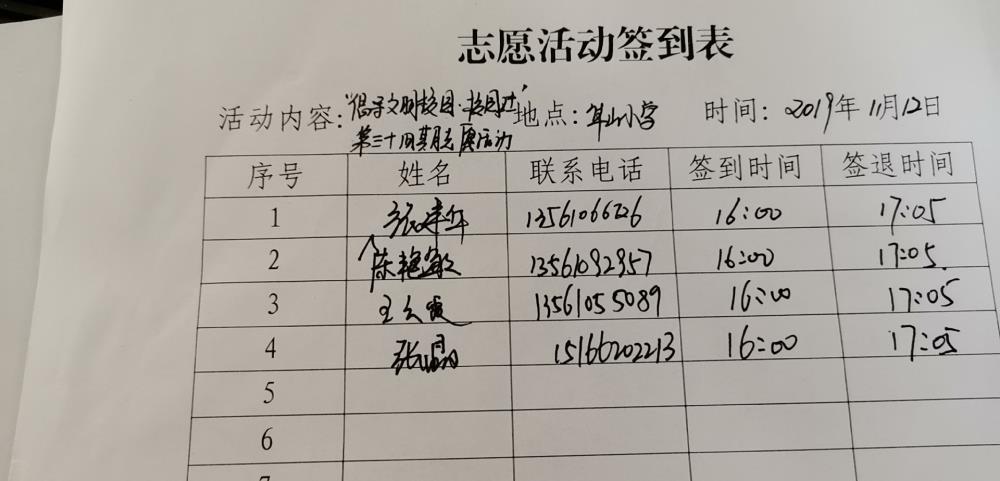 志愿活动签到表
活动内容:"倡导文明校园·校园 地点: 山小学 时间: 2019年11月12日
第三十四期志愿活动
序号 姓名 联系电话 签到时间 签退时间
1 张建华 13561066226 16:00 17:05
2 陈艳敏 13561092957 16:00 17:05
3 王 霞 13561055089 16:00 17:05
4 张 15166202213 16:00 17:05
5
6